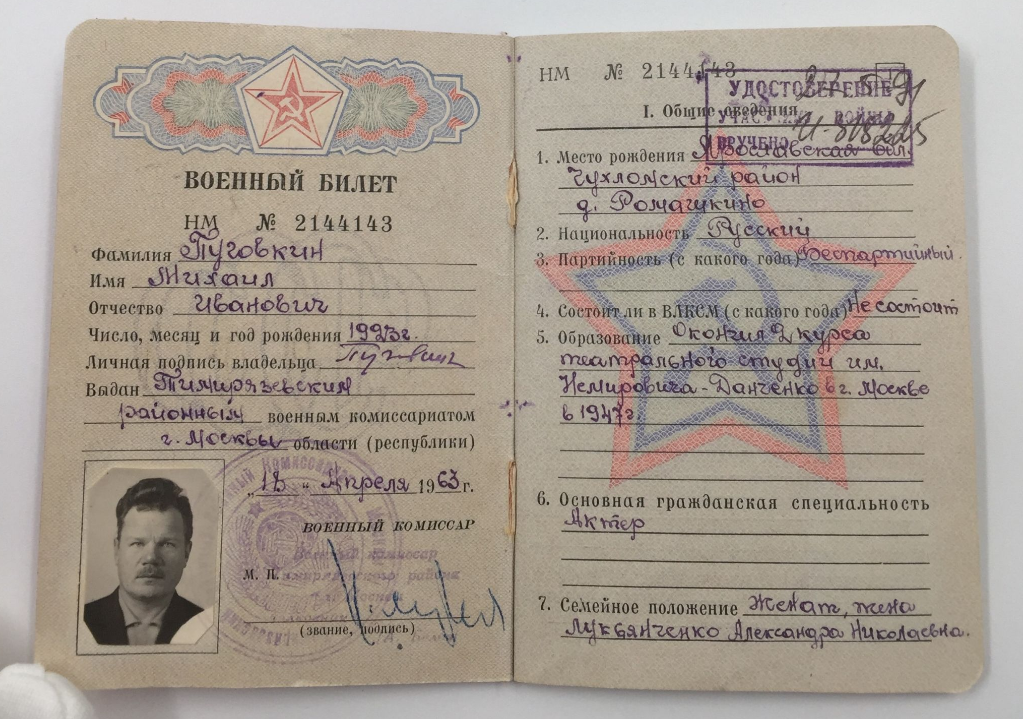 ВОЕННЫЙ БИЛЕТ
НМ № 2144143
Фамилия Пуговкин
Имя Михаил
Отчество Иванович
Число, месяц и год рождения 1923г.
Личная подпись владельца
Выдан Тимирязевским
районным военным комиссариатом
г. Москвы области (республики)
"18" Апреля 1963г.
ВОЕННЫЙ КОМИССАР
Военный комиссар
района
М. П.
(звание, подпись)
НМ № 2144143
УДОСТОВЕРЕНИЕ
ВРУЧЕНО
I. Общие сведения
1. Место рождения Ярославская обл.
Чухломский район
д. Ромашкино
2. Национальность Русский
3. Партийность (с какого года) Беспартийный.
4. Состоит ли в ВЛКСМ (с какого года) Не состоит
5. Образование Окончил 2 курса
театрального студии им.
Немировича-Данченко в г. Москве
в 1947г.
6. Основная гражданская специальность
Актер
7. Семейное положение Женат, жена
Лукьянченко Александра Николаевна.